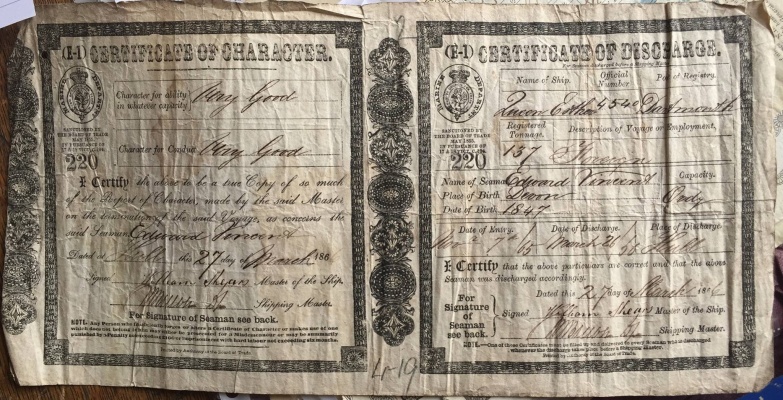 (E-1) CERTIFICATE OF CHARACTER.
MARINE DEPARTMENT
Character for ability
in whatever capacity Very Good
SANCTIONED BY
THE BOARD OF TRADE
IN PURSUANCE OF
220
Character for Conduct Very Good
I Certify the above to be a true Copy of so much
of the Report of Character, made by the said Master
on the termination of the said Voyage, as concerns the
said Seaman Edward Vincent
Dated at this 27 day of March 186
Signed William Master of the Ship.
Shipping Master
For Signature of Seaman see back.
NOTE: Any Person who
Certificate of Character or makes use of one
which does not belong to him
punished by
or imprisonment with hard labour not exceeding six months.
(E-1) CERTIFICATE OF DISCHARGE.
MARINE DEPARTMENT
Name of Ship. Official Number Port of Registry.
Queen Esther 4540 Dartmouth
SANCTIONED BY
THE BOARD OF TRADE
MAY 1855
IN PURSUANCE OF
Registered Tonnage. Description of Voyage or Employment,
220
157 Foreign
Name of Seaman Edward Vincent Capacity.
Place of Birth Devon Ordy
Date of Birth 1847
Date of Entry. Date of Discharge. Place of Discharge
Novr 7th /65 March 26 /66
I Certify that the above particulars are correct and that the above
Seaman was discharged accordingly.
Dated this 27 day of March 1866
For Signature of Seaman see back.
Signed William Master of the Ship.
Shipping Master.
NOTE.—One of these Certificates must be filled up and delivered to every Seaman who is discharged
whenever the discharge takes place before a Shipping Master.
4-19